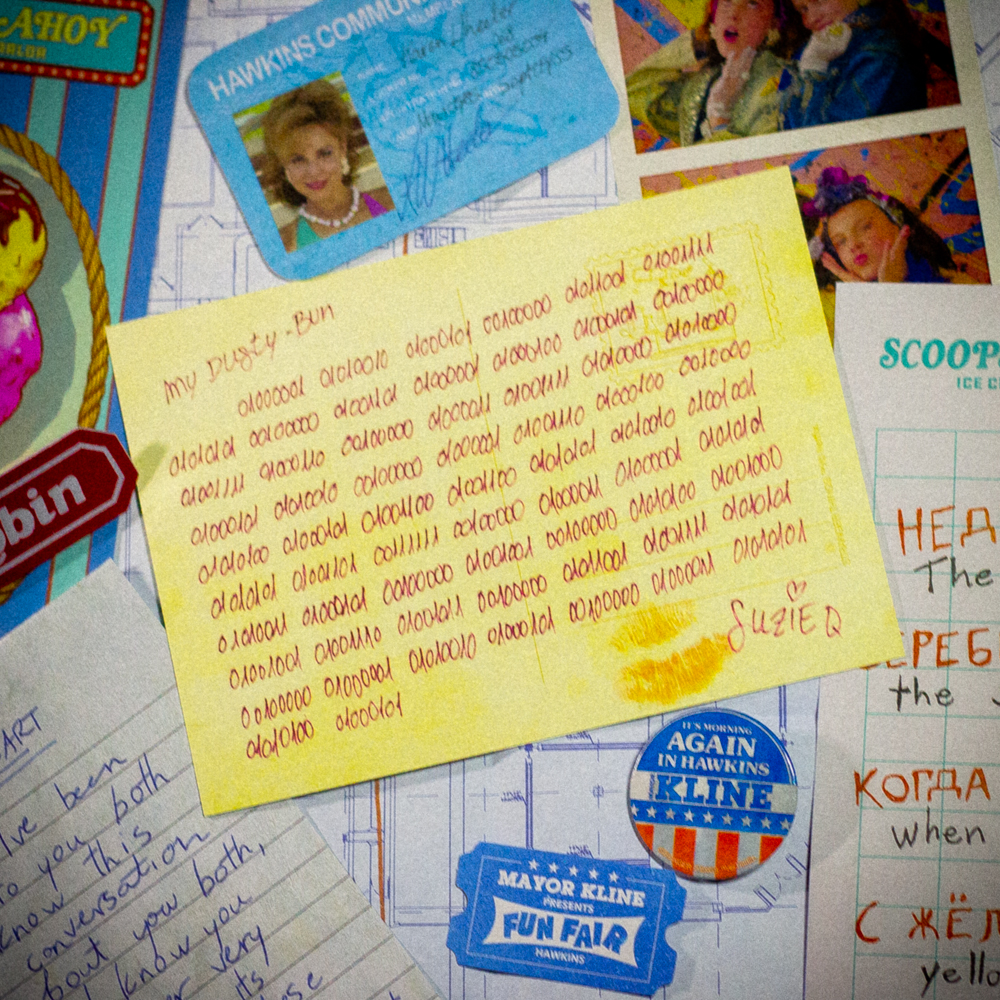 AHOY
PARLOR
HAWKINS COMMUN
My Dusty-Bun
01000001 01010010 01000101 00100000 01011001 01001111
01010101 00100000 01001101 01000001 01000100 01000101 00100000
01001111 01000110 00100000 01000011 01001111 01010000 01010000
01000101 01010010 00100000 01000001 01001110 01000100 00100000
01010100 01000101 01001100 01001100 01010101 01010010 01001001
01010101 01001101 00111111 00100000 01000011 01000001 01010101
01010011 01000101 00100000 01001001 00100000 01010100 01001000
01001001 01001110 01001011 00100000 01011001 01001111 01010101
00100000 01000001 01010010 01000101 00100000 01000011 01010101
01010100 01000101
SUZIE Q
bin
SCOOP
ICE C
НЕД
The
ЕРЕБ
the
КОГДА
when
С ЖЁЛ
yello
ART
I've been
to you both
know this
conversation
bout you both,
I know you
very
its
IT'S MORNING
AGAIN
IN HAWKINS
KLINE
MAYOR KLINE
PRESENTS
FUN FAIR
HAWKINS